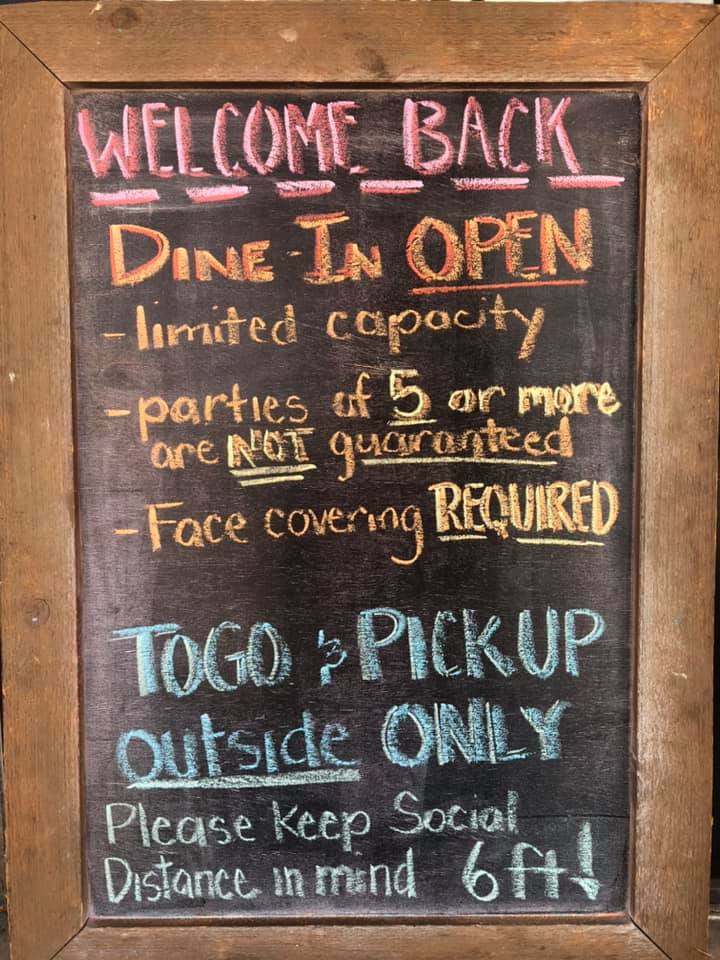 WELCOME BACK
DINE-IN OPEN
-limited capacity
-parties of 5 or more
are NOT guaranteed
-Face covering REQUIRED
TOGO & PICKUP
outside ONLY
Please Keep Social
Distance in mind 6ft!